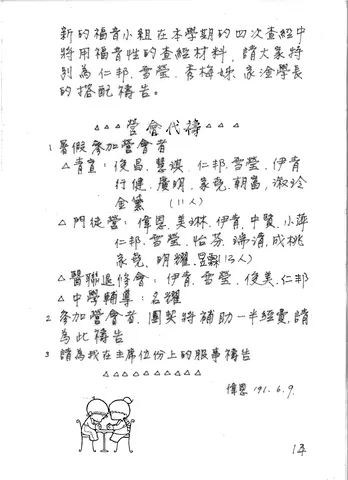 新的福音小組在本學期的四次查經中
將用福音性的查經材料，請大家特
別為仁邦、雪瑩、秀梅姊、家淦學長
的搭配禱告。
△△△營會代禱△△△
1 暑假參加營會者
△青宣：俊昌、慧淇、仁邦、雪瑩、伊育
行健、廣明、家堯、朝富、淑玲
金葉 (11人)
△門徒營：偉恩、美琳、伊育、中賢、小萍
仁邦、雪瑩、怡芬、瑞清、成桃
家堯、明耀、(13人)
△醫聯退修會：伊育、雪瑩、俊美、仁邦
△中學輔導：名耀
2. 參加營會者，團契將補助一半經費，請
為此禱告
3 請為我在主席位份上的服事禱告
△△△△△△△△△
偉恩 '91.6.9.
13